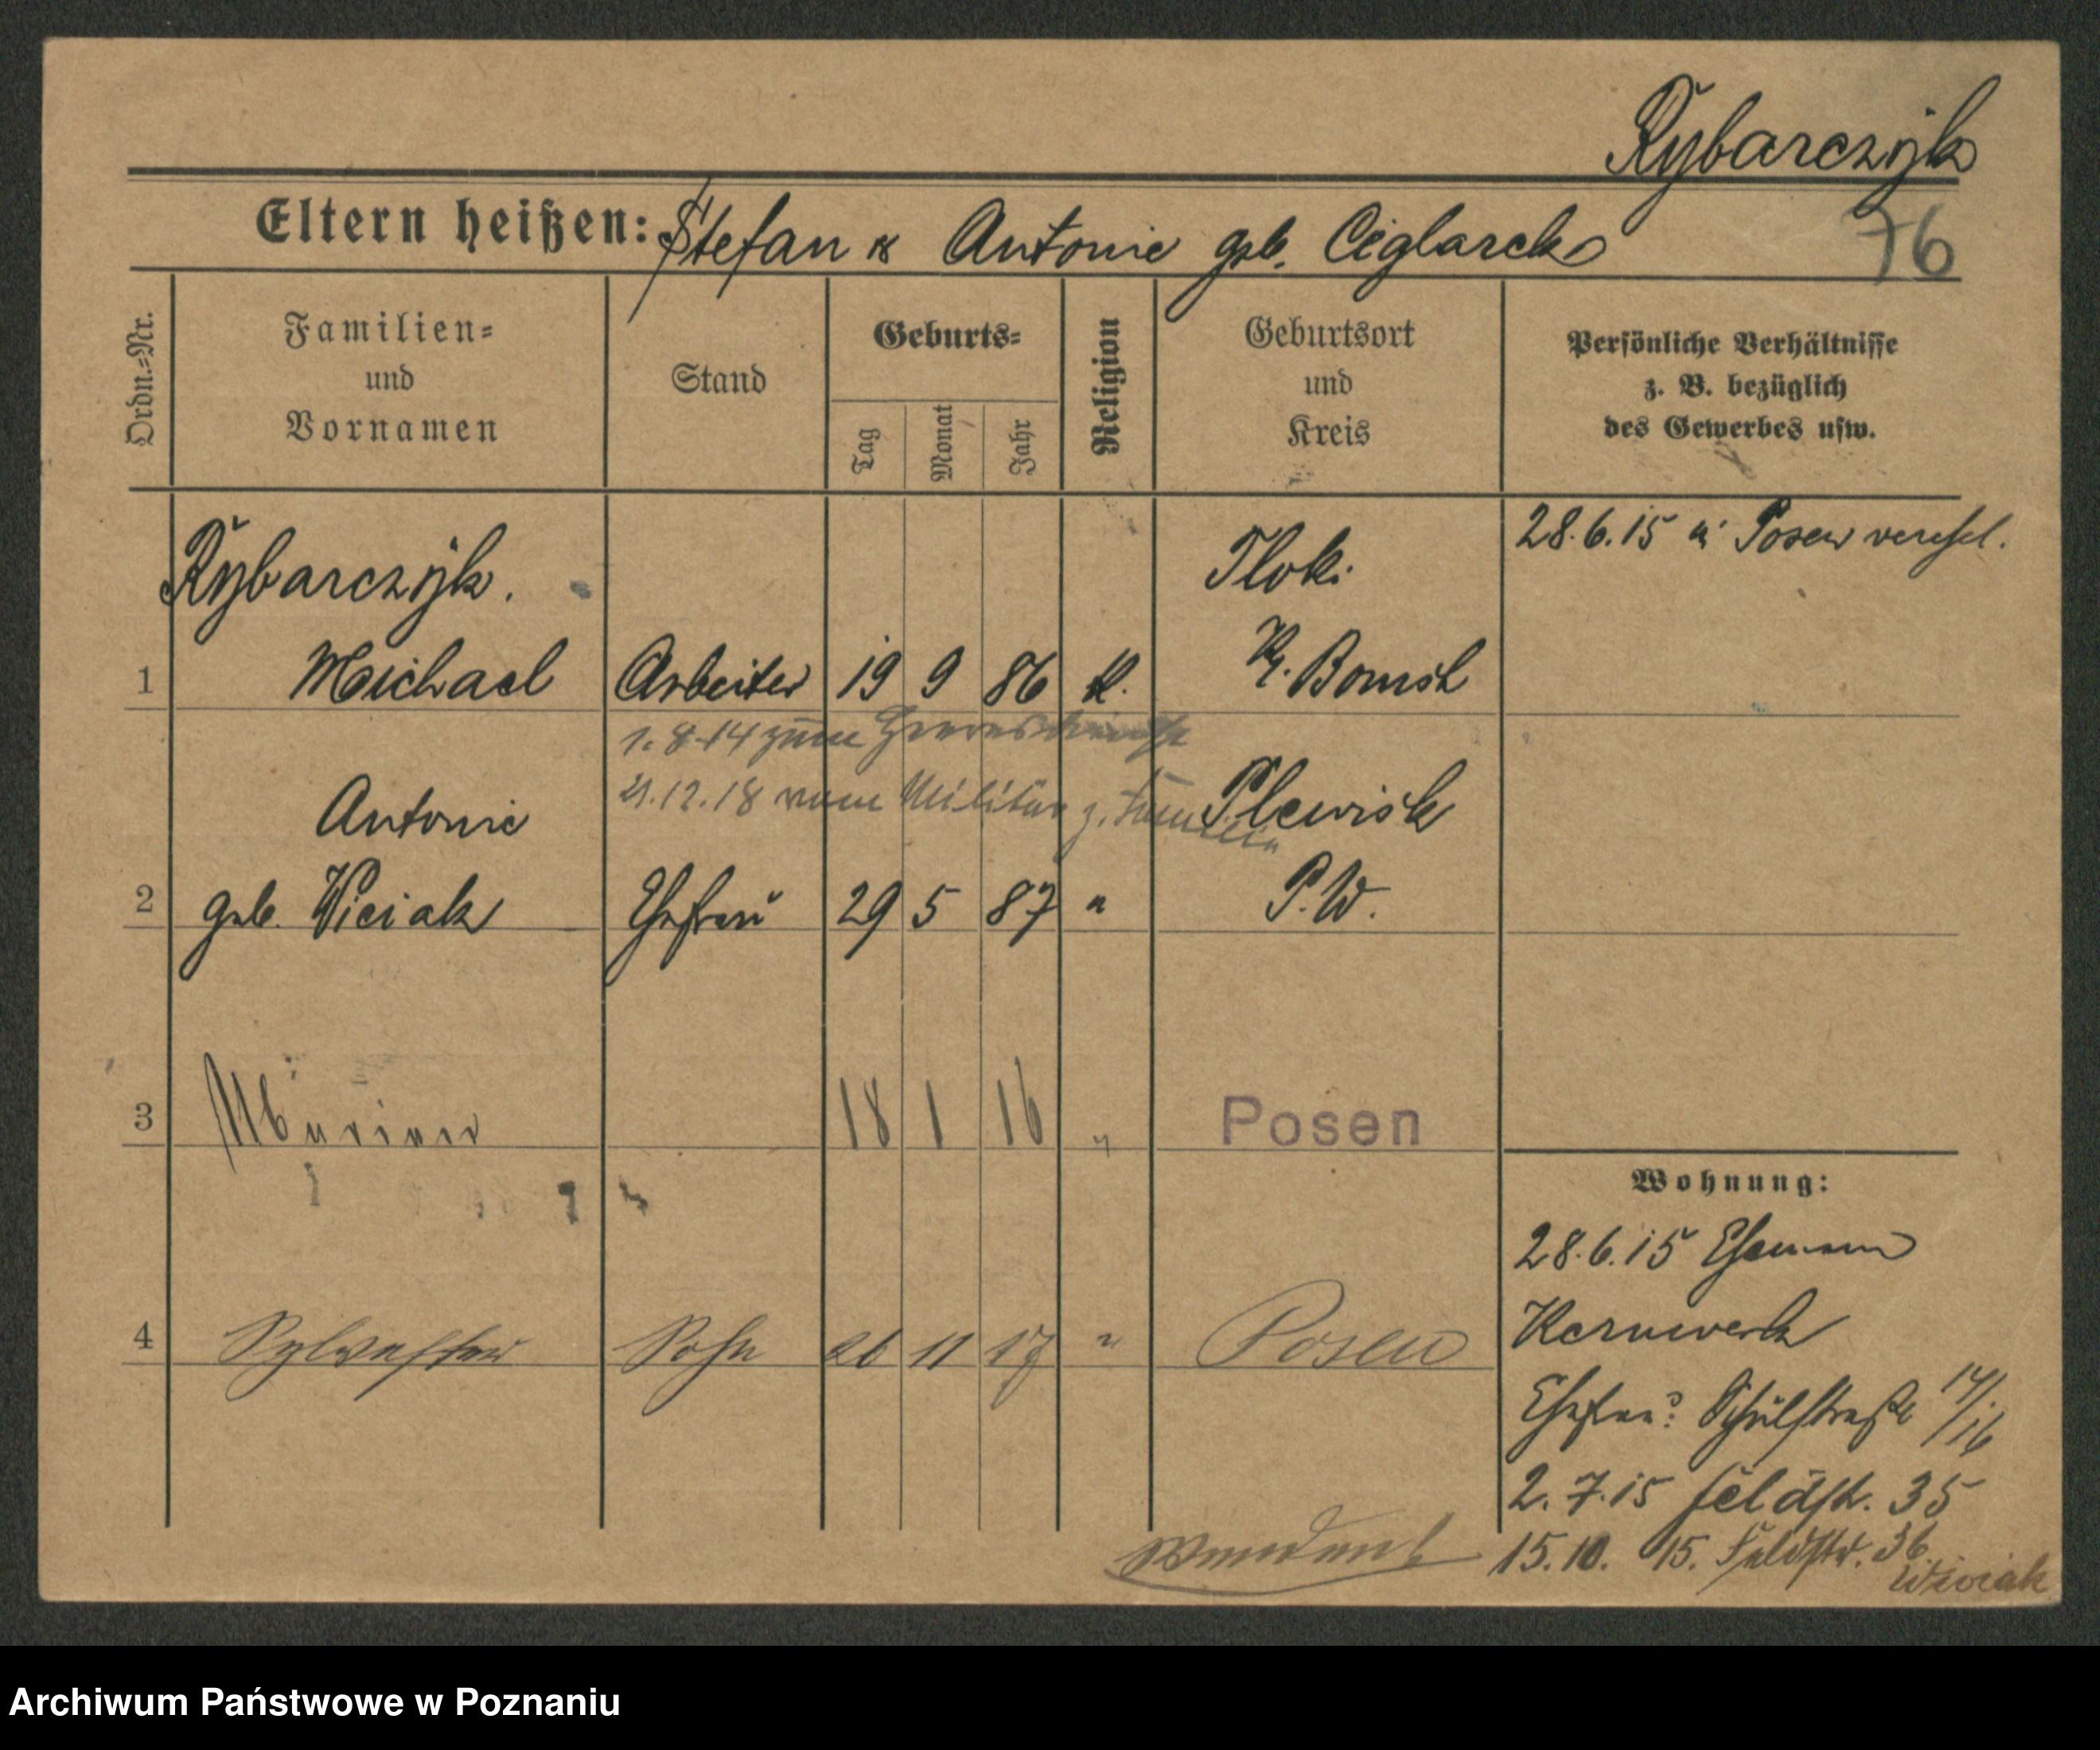 Rybarczyk
76
Eltern heißen: Stefan & Antonie geb. Ceglarek
Ordn.=Nr.
Familien=
und
Vornamen
Stand
Geburts=
Tag
Monat
Jahr
Religion
Geburtsort
und
Kreis
Persönliche Verhältnisse
z. B. bezüglich
des Gewerbes usw.
Rybarczyk.
Tloki
28.6.15 in Posen verehel.
1 Michael Arbeiter 19 9 86 k. Kr. Bomst
1.8.14 zum Heeresdienst
21.12.18 vom Militär z. Familie
Antonie Plewisk
2 geb. Wiciak Ehefrau 29 5 87 " P.W.
3 18 1 16 " Posen
Wohnung:
28.6.15 Ehemann
Kernwerk
4 Sylvester Sohn 26 11 17 " Posen
Ehefrau: Schulstraße 14/16
2.7.15 Feldstr. 35
15.10.15. Feldstr. 36
Wiciak
Wenden!
Archiwum Państwowe w Poznaniu